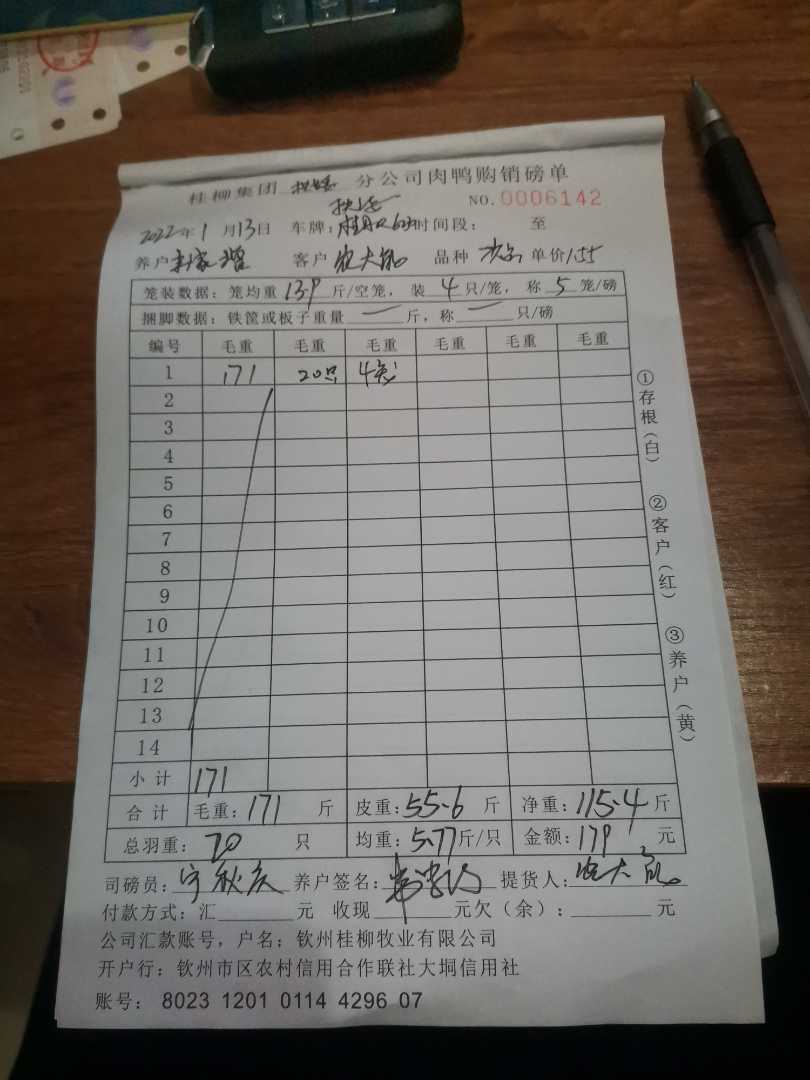 桂柳集团 分公司肉鸭购销磅单
NO.0006142
2022年1月13日 车牌: 时间段: 至
养户 客户 农大 品种 单价1.55
笼装数据: 笼均重 13.9 斤/空笼, 装 4 只/笼, 称 5 笼/磅
捆脚数据: 铁筐或板子重量 一 斤, 称 一 只/磅
编号 毛重 毛重 毛重 毛重 毛重 毛重
1 171 20只 4笼
2
3
4
5
6
7
8
9
10
11
12
13
14
小计 171
合计 毛重: 171 斤 皮重: 55.6 斤 净重: 115.4 斤
总羽重: 20 只 均重: 5.77 斤/只 金额: 179 元
司磅员: 宁秋庆 养户签名: 提货人: 农大
付款方式: 汇 元 收现 元欠(余): 元
公司汇款账号, 户名; 钦州桂柳牧业有限公司
开户行: 钦州市区农村信用合作联社大垌信用社
账号: 8023 1201 0114 4296 07
①存根(白)
②客户(红)
③养户(黄)